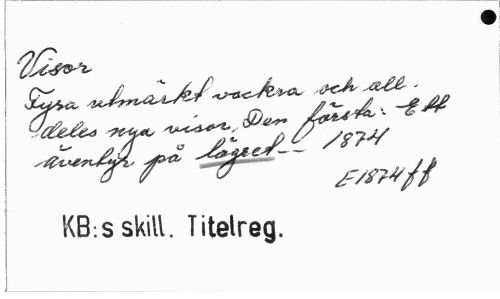 Visor
Fyra utmärkt vackra och all-
deles nya visor, Den första: Ett
äventyr på lägret -- 1874
E1874ff
KB:s skill. Titelreg.